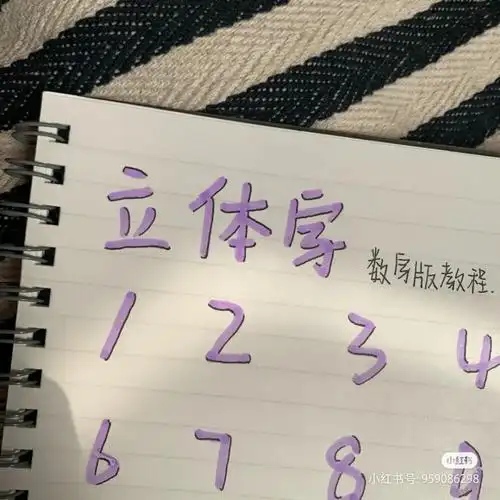 立体字
数字版教程.
1 2 3 4
6 7 8
小红书
小红书号: 959086298